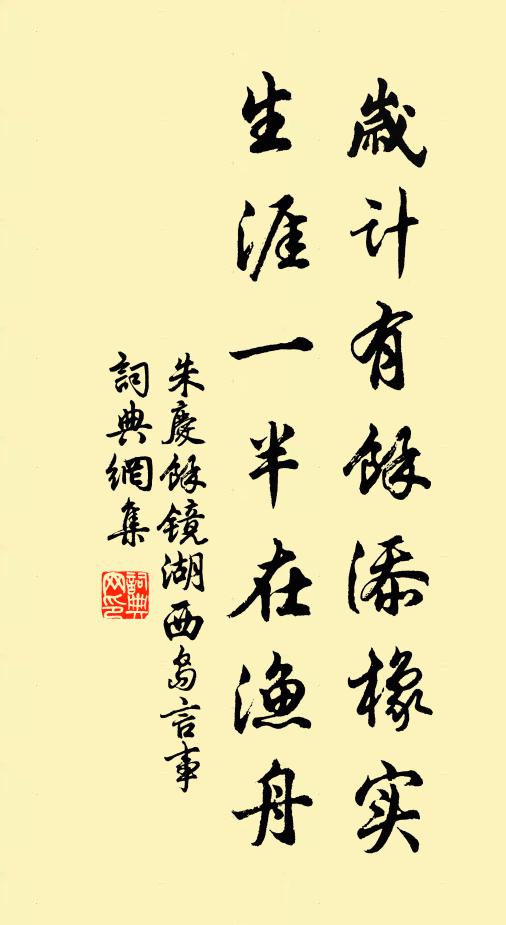 歲计有餘添橡实
生涯一半在渔舟
朱慶餘镜湖西岛言事
詞典網集
詞典网印